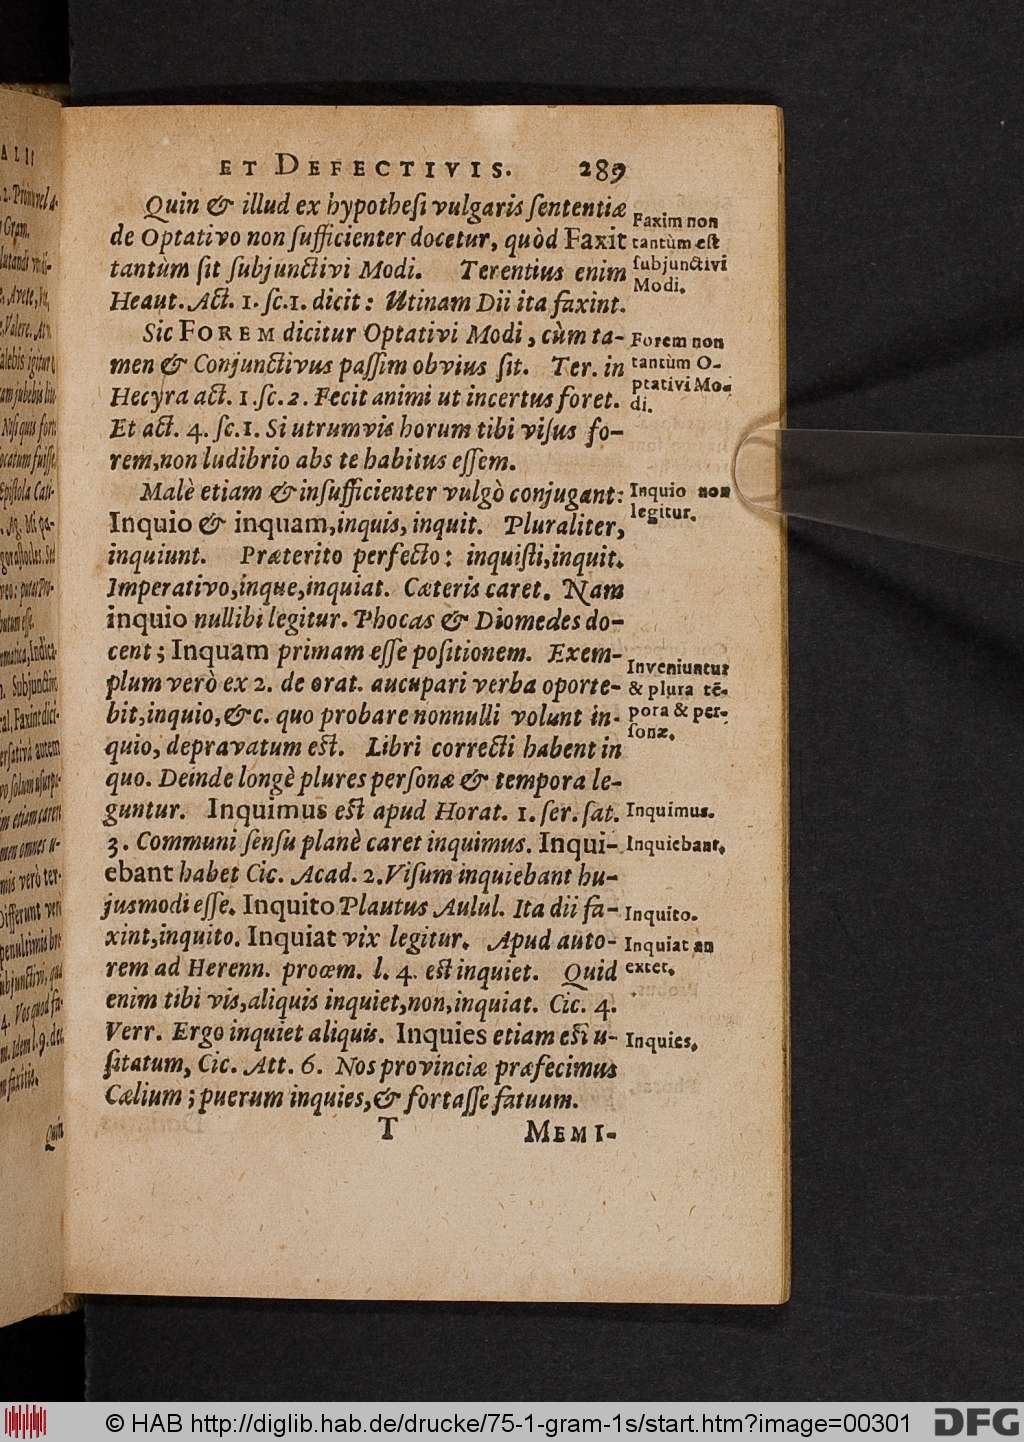 ET DEFECTIVIS. 289
Quin & illud ex hypotheſi vulgaris ſententiæ
de Optativo non ſufficienter docetur, quòd Faxit
tantùm ſit ſubjunctivi Modi. Terentius enim
Heaut. Act. 1. ſc. 1. dicit: Utinam Dii ita faxint.
Sic FOREM dicitur Optativi Modi, cùm ta-
men & Conjunctivus paſſim obvius ſit. Ter. in
Hecyra act. 1. ſc. 2. Fecit animi ut incertus foret.
Et act. 4. ſc. 1. Si utrumvis horum tibi viſus fo-
rem, non ludibrio abs te habitus eſſem.
Malè etiam & inſufficienter vulgò conjugant:
Inquio & inquam, inquis, inquit. Pluraliter,
inquiunt. Præterito perfecto: inquiſti, inquit.
Imperativo, inque, inquiat. Cæteris caret. Nam
inquio nullibi legitur. Phocas & Diomedes do-
cent; Inquam primam eſſe poſitionem. Exem-
plum verò ex 2. de orat. aucupari verba oporte-
bit, inquio, &c. quo probare nonnulli volunt in-
quio, depravatum eſt. Libri correcti habent in
quo. Deinde longè plures perſonæ & tempora le-
guntur. Inquimus eſt apud Horat. 1. ſer. ſat.
3. Communi ſenſu planè caret inquimus. Inqui-
ebant habet Cic. Acad. 2. Viſum inquiebant hu-
jusmodi eſſe. Inquito Plautus Aulul. Ita dii fa-
xint, inquito. Inquiat vix legitur. Apud auto-
rem ad Herenn. proœm. l. 4. eſt inquiet. Quid
enim tibi vis, aliquis inquiet, non, inquiat. Cic. 4.
Verr. Ergo inquiet aliquis. Inquies etiam eſt u-
ſitatum, Cic. Att. 6. Nos provinciæ præfecimus
Cælium; puerum inquies, & fortaſſe fatuum.
T MEMI-
Faxim non
tantùm eſt
ſubjunctivi
Modi.
Forem non
tantùm O-
ptativi Mo-
di.
Inquio non
legitur.
Inveniuntur
& plura tē-
pora & per-
ſonæ.
Inquimus.
Inquiebant,
Inquito.
Inquiat an
extet.
Inquies.
© HAB http://diglib.hab.de/drucke/75-1-gram-1s/start.htm?image=00301
DFG